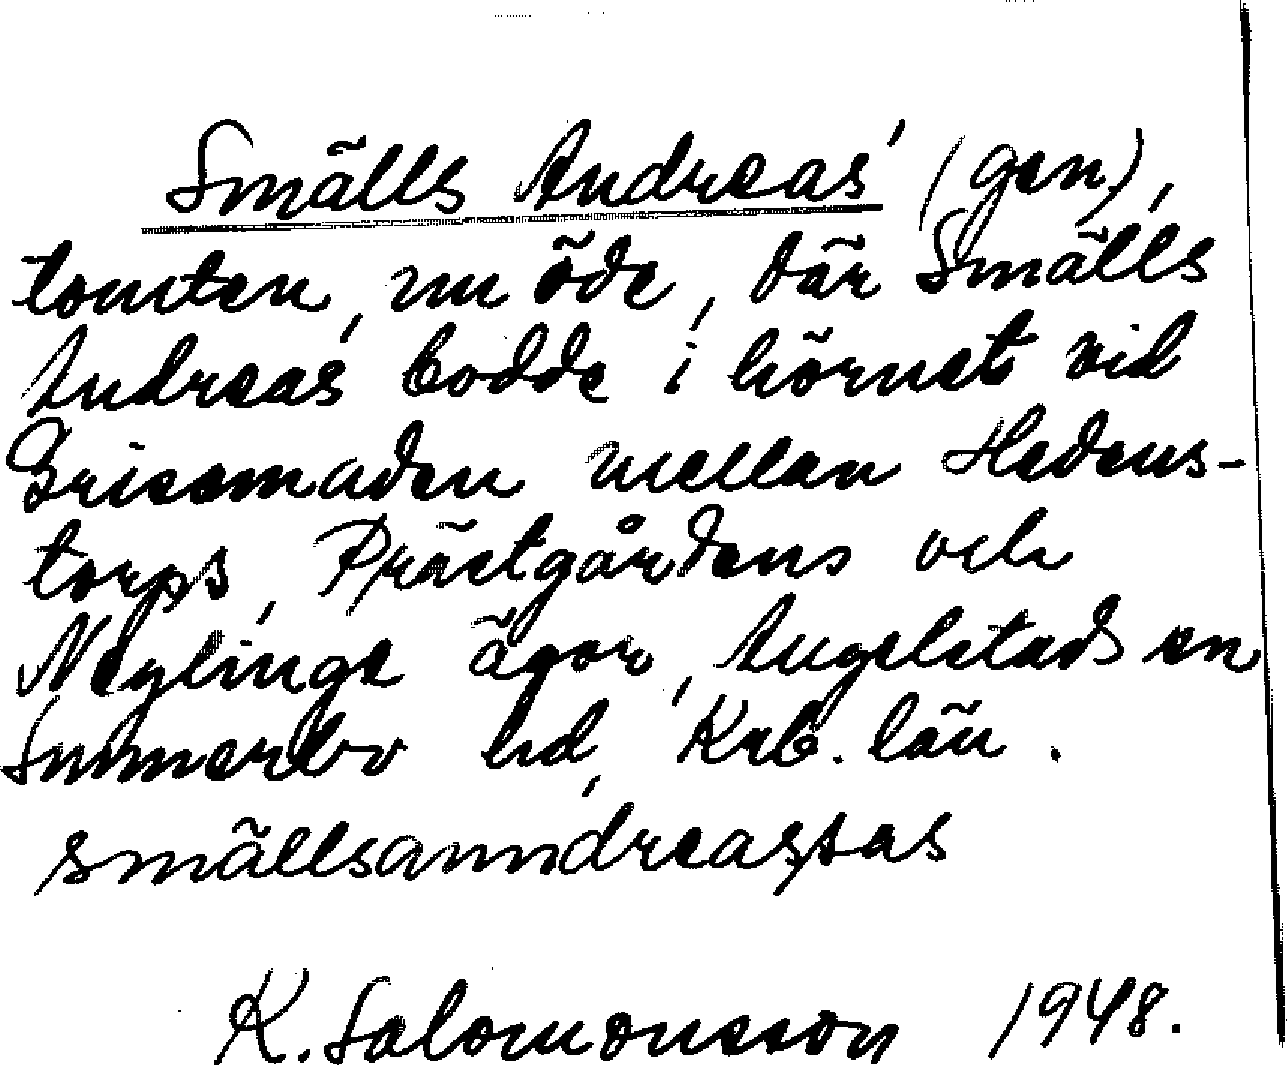 Smälls Andreas' (gen),
tomten, nu öde, där Smälls
Andreas' bodde i hörnet vid
Grissmaden mellan Hedens-
torps, Prästgårdens och
Neglinge ägor, Angelstads sn
Sunnerbo hd, Krb. län.
smällsanndreassas
K. Salomonsson 1948.